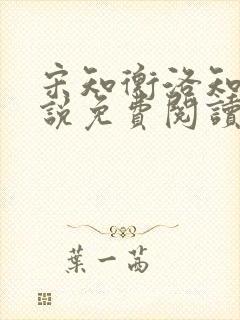 宋知衡洛知
說免費閱讀
葉一茜